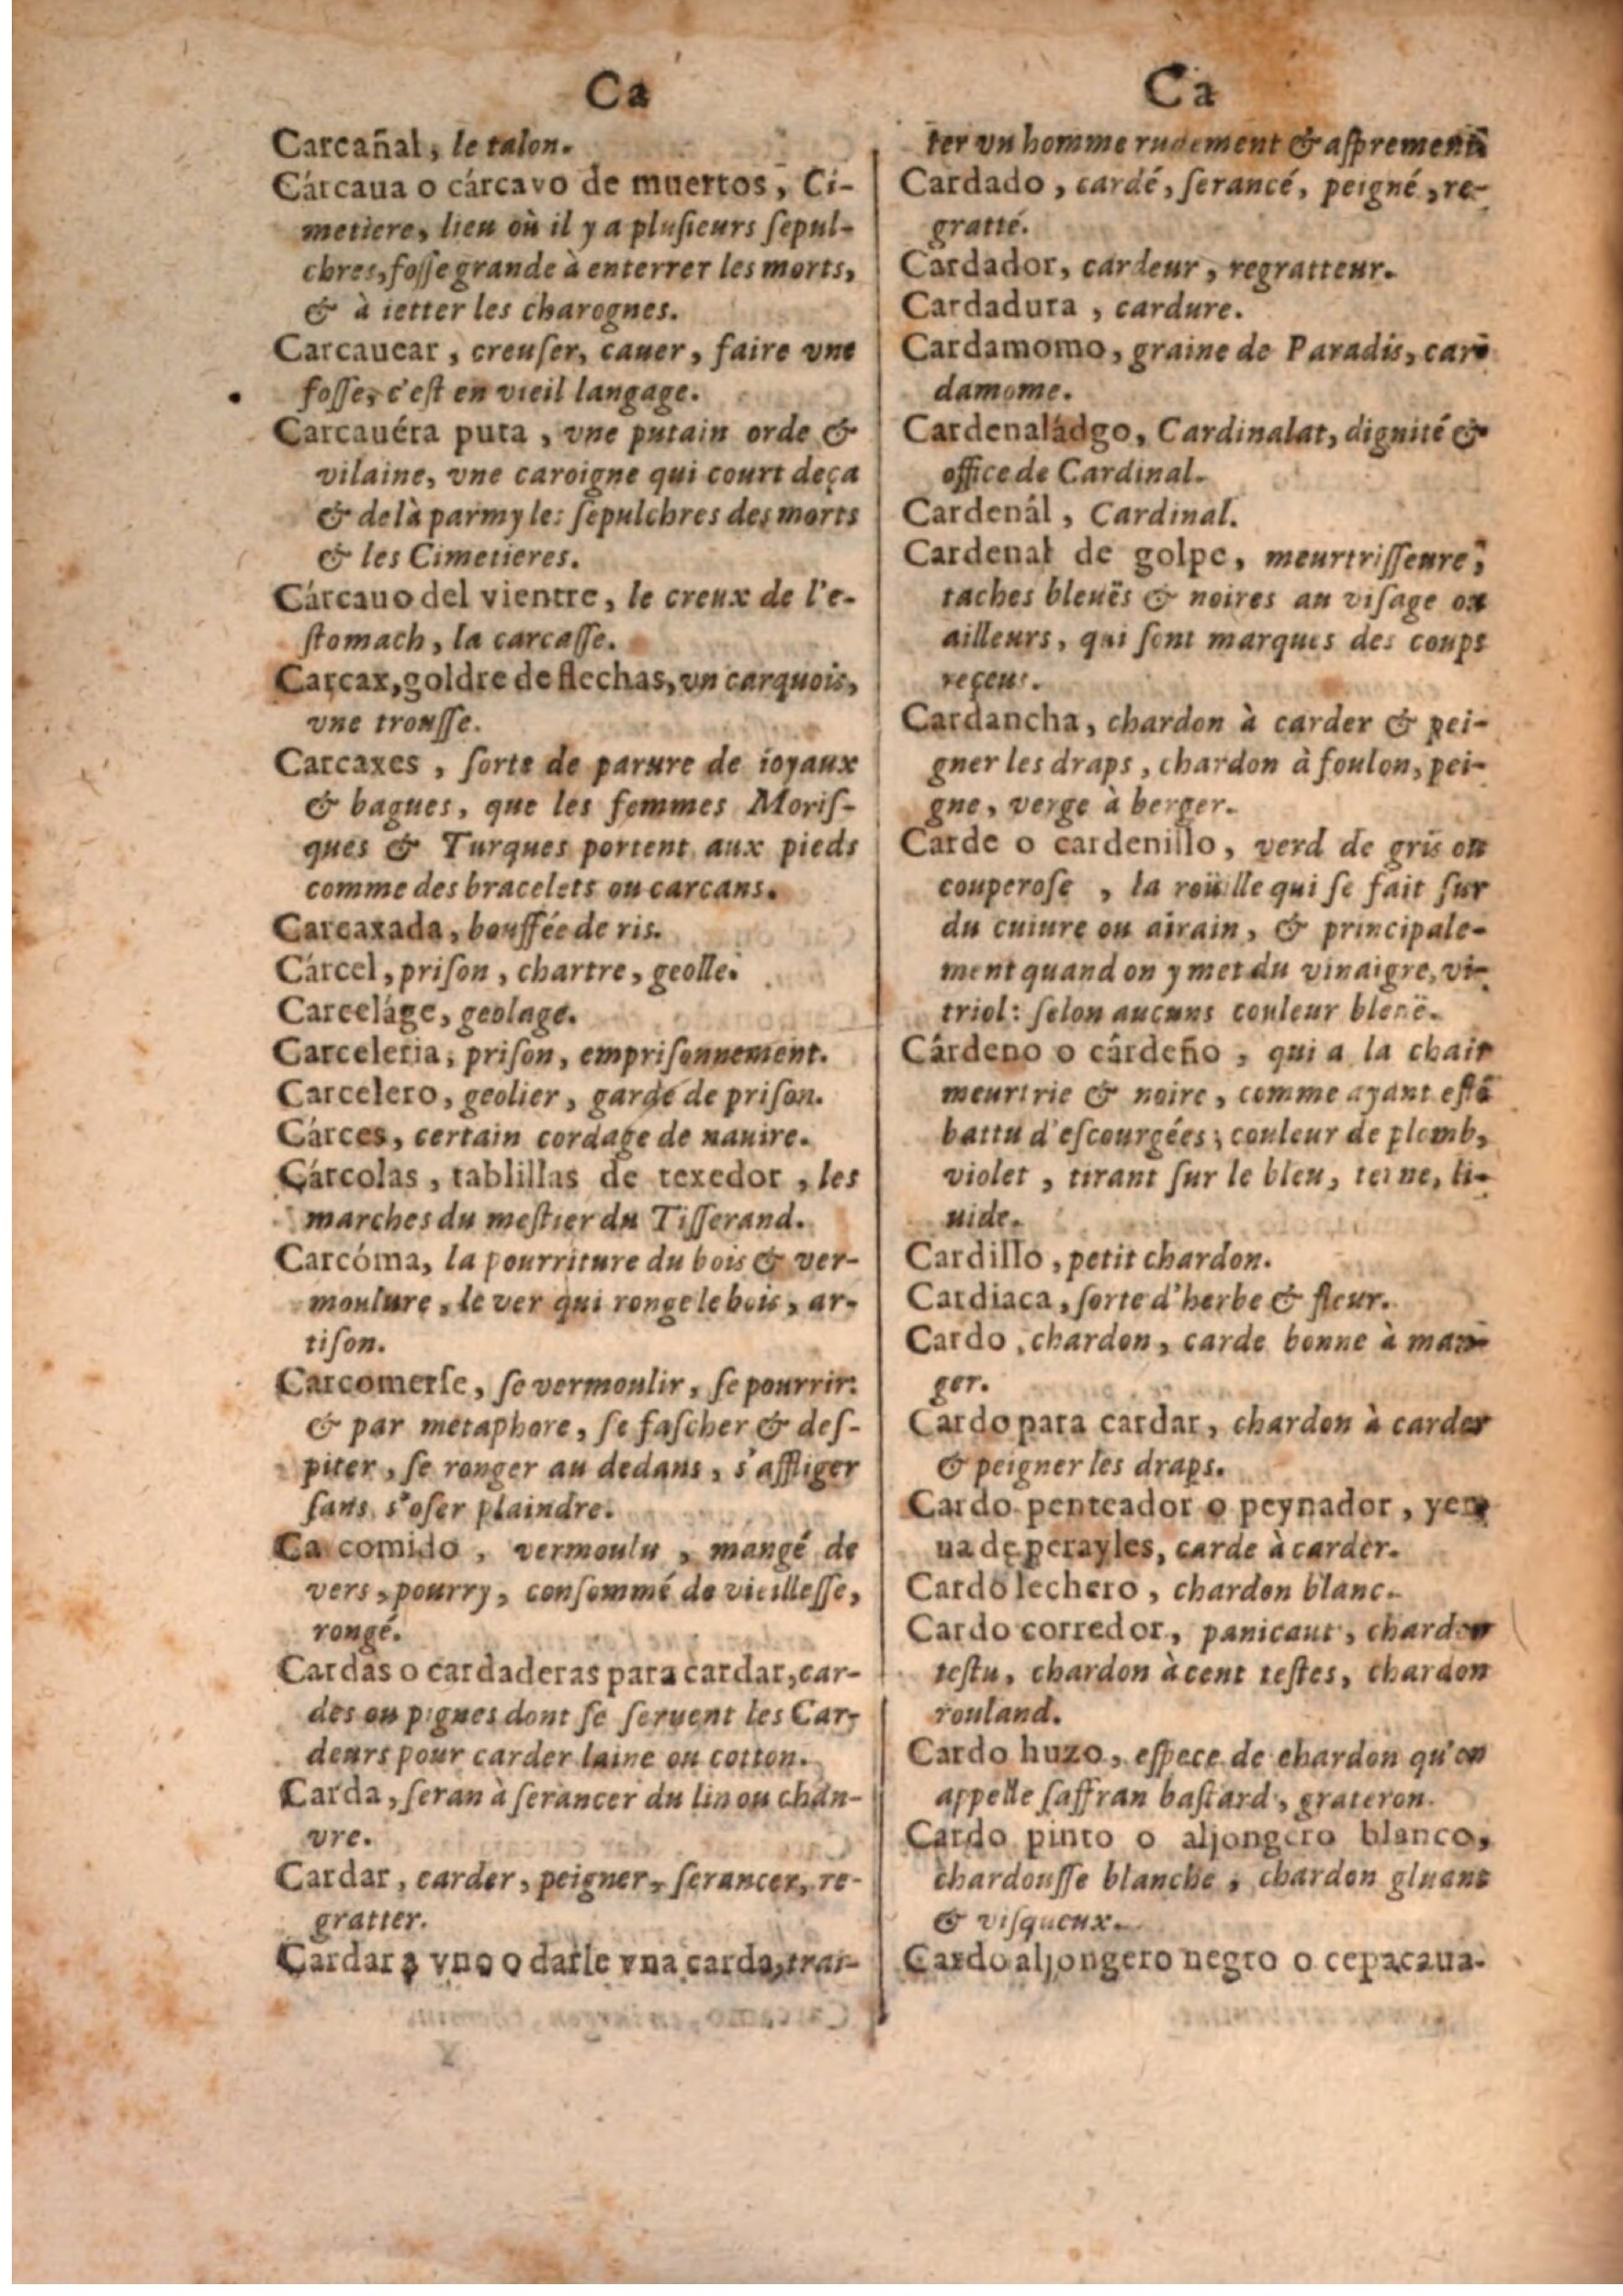 Ca
Carcañal, le talon.
Cárcaua o cárcavo de muertos, Ci-
metiere, lieu où il y a plusieurs sepul-
chres, fosse grande à enterrer les morts,
& à ietter les charognes.
Carcauear, creuser, cauer, faire vne
fosse, c'est en vieil langage.
Carcauéra puta, vne putain orde &
vilaine, vne caroigne qui court deça
& delà parmy les sepulchres des morts
& les Cimetieres.
Cárcauo del vientre, le creux de l'e-
stomach, la carcasse.
Carcax, goldre de flechas, vn carquois,
vne trousse.
Carcaxes, sorte de parure de ioyaux
& bagues, que les femmes Moris-
ques & Turques portent aux pieds
comme des bracelets ou carcans.
Carcaxada, bouffée de ris.
Cárcel, prison, chartre, geolle.
Carceláge, geolage.
Carceleria, prison, emprisonnement.
Carcelero, geolier, garde de prison.
Cárces, certain cordage de nauire.
Cárcolas, tablillas de texedor, les
marches du mestier du Tisserand.
Carcóma, la pourriture du bois & ver-
moulure, le ver qui ronge le bois, ar-
tison.
Carcomerse, se vermoulir, se pourrir:
& par metaphore, se fascher & des-
piter, se ronger au dedans, s'affliger
sans s'oser plaindre.
Ca comido, vermoulu, mangé de
vers, pourry, consommé de vieillesse,
rongé.
Cardas o cardaderas para cardar, car-
des ou pignes dont se seruent les Car-
deurs pour carder laine ou cotton.
Carda, seran à serancer du lin ou chan-
vre.
Cardar, carder, peigner, serancer, re-
gratter.
Cardar a vno o darle vna carda, trai-
Ca
ter vn homme rudement & asprement
Cardado, cardé, serancé, peigné, re-
gratté.
Cardador, cardeur, regratteur.
Cardadura, cardure.
Cardamomo, graine de Paradis, car-
damome.
Cardenaládgo, Cardinalat, dignité &
office de Cardinal.
Cardenál, Cardinal.
Cardenal de golpe, meurtrisseure,
taches bleuës & noires au visage ou
ailleurs, qui sont marques des coups
reçeus.
Cardancha, chardon à carder & pei-
gner les draps, chardon à foulon, pei-
gne, verge à berger.
Carde o cardenillo, verd de gris ou
couperose, la roüille qui se fait sur
du cuiure ou airain, & principale-
ment quand on y met du vinaigre, vi-
triol: selon aucuns couleur bleuë.
Cárdeno o cárdeño, qui a la chair
meurtrie & noire, comme ayant esté
battu d'escourgées; couleur de plomb,
violet, tirant sur le bleu, terne, li-
uide.
Cardillo, petit chardon.
Cardiaca, sorte d'herbe & fleur.
Cardo, chardon, carde bonne à man-
ger.
Cardo para cardar, chardon à carder
& peigner les draps.
Cardo penteador o peynador, yer-
ua de perayles, carde à carder.
Cardo lechero, chardon blanc.
Cardo corredor, panicaut, chardon
testu, chardon à cent testes, chardon
rouland.
Cardo huzo, espece de chardon qu'on
appelle saffran bastard, grateron.
Cardo pinto o aljongero blanco,
chardousse blanche, chardon gluant
& visqueux.
Cardo aljongero negro o cepacaua-